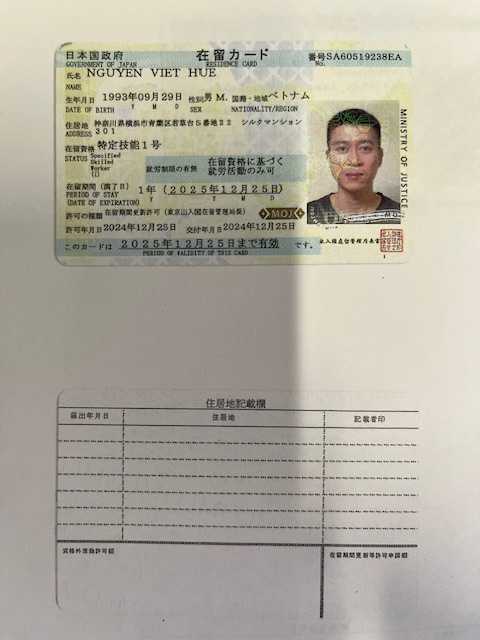 日本国政府 在留カード 番号SA60519238EA
GOVERNMENT OF JAPAN RESIDENCE CARD No.
氏名 NGUYEN VIET HUE
NAME
生年月日 1993年09月29日 性別 男 M. 国籍・地域 ベトナム
DATE OF BIRTH Y M D SEX NATIONALITY/REGION
住居地 神奈川県横浜市青葉区若草台5番地22 シルクマンション
ADDRESS 301
在留資格 特定技能1号
STATUS Specified
Skilled
Worker
(i)
就労制限の有無 在留資格に基づく
就労活動のみ可
在留期間(満了日) 1年(2025年12月25日)
PERIOD OF STAY Y Y M D
(DATE OF EXPIRATION)
許可の種類 在留期間更新許可(東京出入国在留管理局長)
MOJ
許可年月日 2024年12月25日 交付年月日 2024年12月25日
このカードは 2025年12月25日まで有効 です。
PERIOD OF VALIDITY OF THIS CARD
MINISTRY OF JUSTICE
住居地記載欄
届出年月日 住居地 記載者印
資格外活動許可欄 在留期間更新等許可申請欄